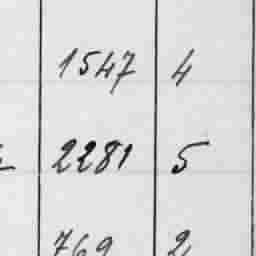 1547 4
2281 5
769 2